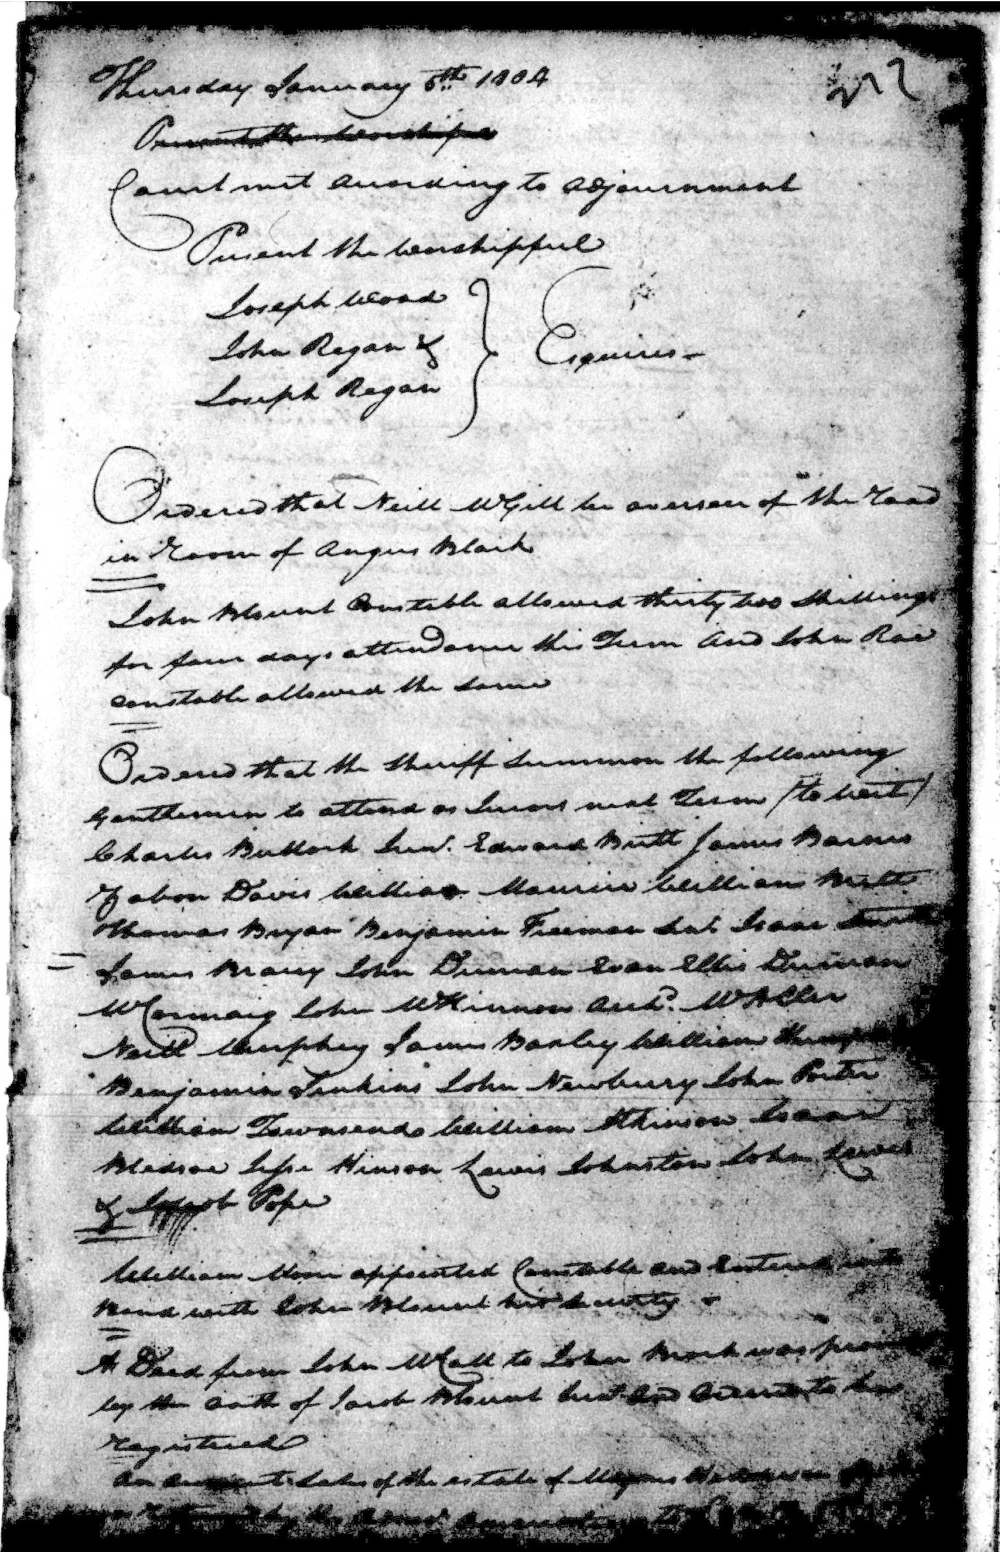 Thursday January 5th 1804
277
Present the Worshipful
Court met According to Adjournment
Present the Worshipful
Joseph Wood
John Regan &
Esquires
Joseph Regan
Ordered that Neill McGill be overseer of the road
in Room of Angus Black
John Blount Constable allowed thirty two Shillings
for four days attendance this Term And John Rae
constable allowed the same
Ordered that the Sheriff Summon the following
Gentlemen to attend as Jurors next Term (to wit)
Charles Bullock Junr. Edward Britt James Barnes
Zabon Davis William William Britt
Thomas Bryan Benjamin Freeman Isaac
James John Duncan Evan Ellis Duncan
McCormaig John McKinnon Archd.
Neill Murphey James Baxley William
Benjamin Jenkins John Newbury John Porter
William Townsend William Atkinson Isaac
Bledsoe Jesse Hinson Lewis Johnston John Lewis
& Jacob Pope
William Moore appointed Constable and Entered into
Bond with John Blount his Security
A Deed from John McCall to John was
by the oath of Jacob Blount and to be
registered
An Sales of the estate of
by the